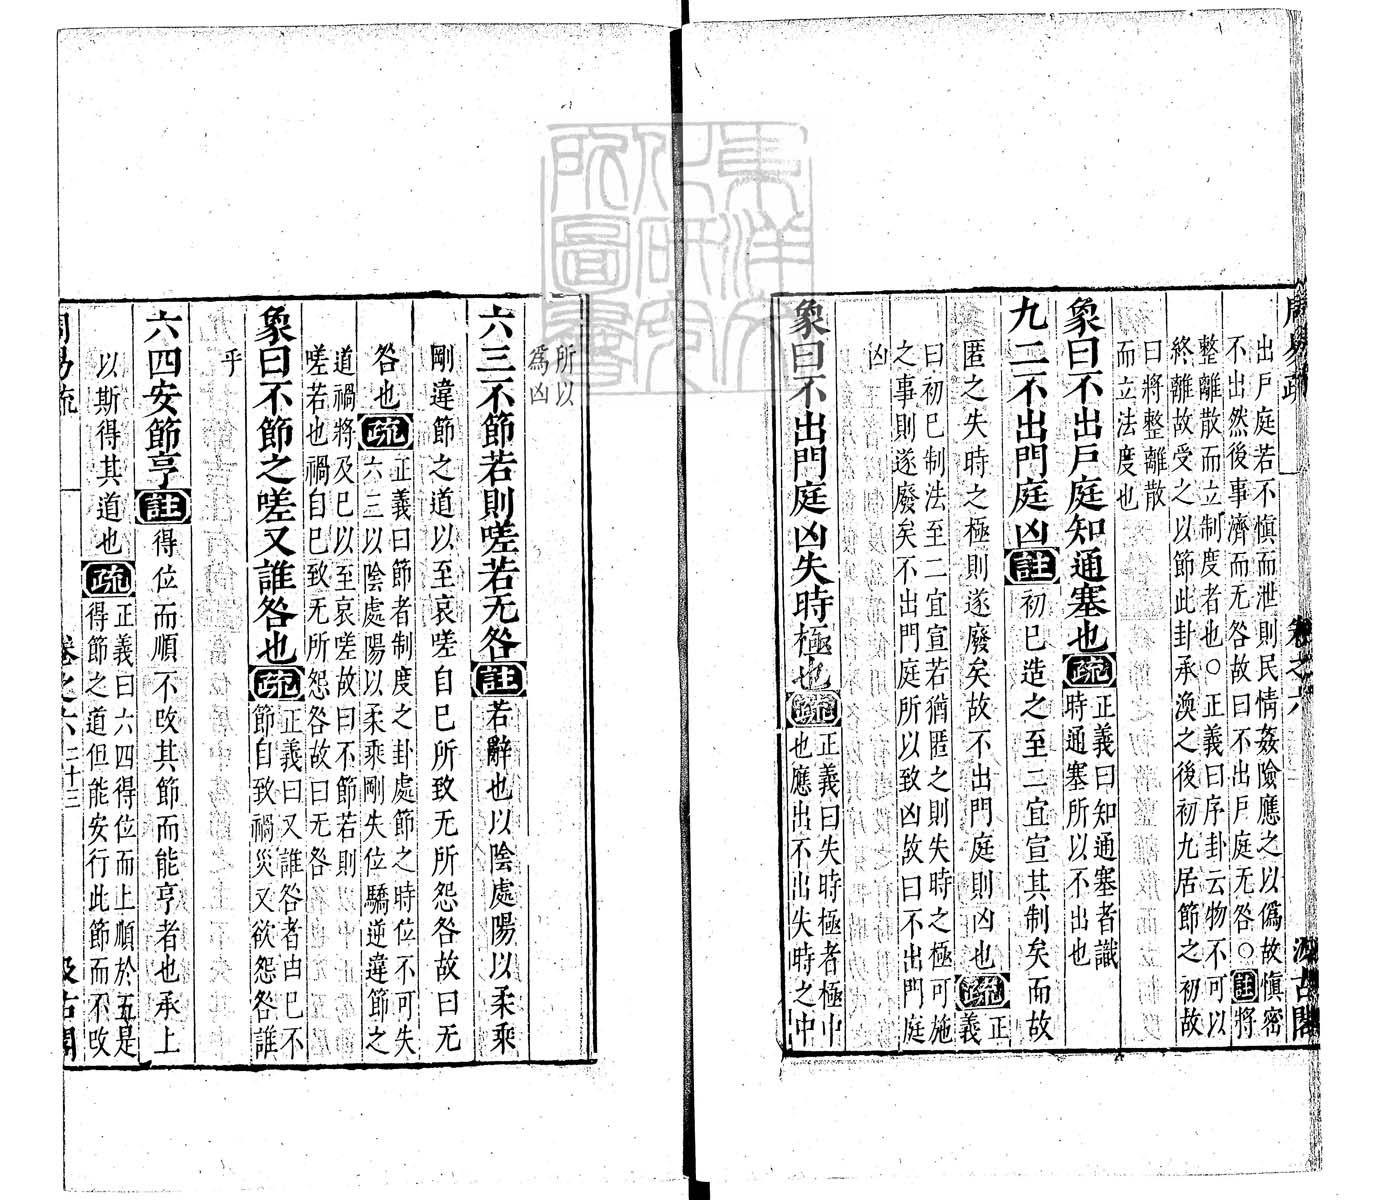 周易疏　卷之六　汲古閣
出戶庭若不愼而泄則民情姦險應之以僞故愼密
不出然後事濟而无咎故曰不出戶庭无咎○註將
整離散而立制度者也○正義曰序卦云物不可以
終離故受之以節此卦承渙之後初九居節之初故
曰將整離散
而立法度也
象曰不出戶庭知通塞也疏正義曰知通塞者識
時通塞所以不出也
九二不出門庭凶註初已造之至二宜宣其制矣而故
匿之失時之極則遂廢矣故不出門庭則凶也疏正
義
曰初已制法至二宜宣若猶匿之則失時之極可施
之事則遂廢矣不出門庭所以致凶故曰不出門庭
凶
象曰不出門庭凶失時極也疏正義曰失時極者極中
也應出不出失時之中
所以
爲凶
六三不節若則嗟若无咎註若辭也以陰處陽以柔乘
剛違節之道以至哀嗟自已所致无所怨咎故曰无
咎也疏正義曰節者制度之卦處節之時位不可失
六三以陰處陽以柔乘剛失位驕逆違節之
道禍將及已以至哀嗟故曰不節若則
嗟若也禍自已致无所怨咎故曰无咎
象曰不節之嗟又誰咎也疏正義曰又誰咎者由已不
節自致禍災又欲怨咎誰
乎
六四安節亨註得位而順不改其節而能亨者也承上
以斯得其道也疏正義曰六四得位而上順於五是
得節之道但能安行此節而不改
周易疏　卷之六　二十三　汲古閣
東洋文化研究所圖書